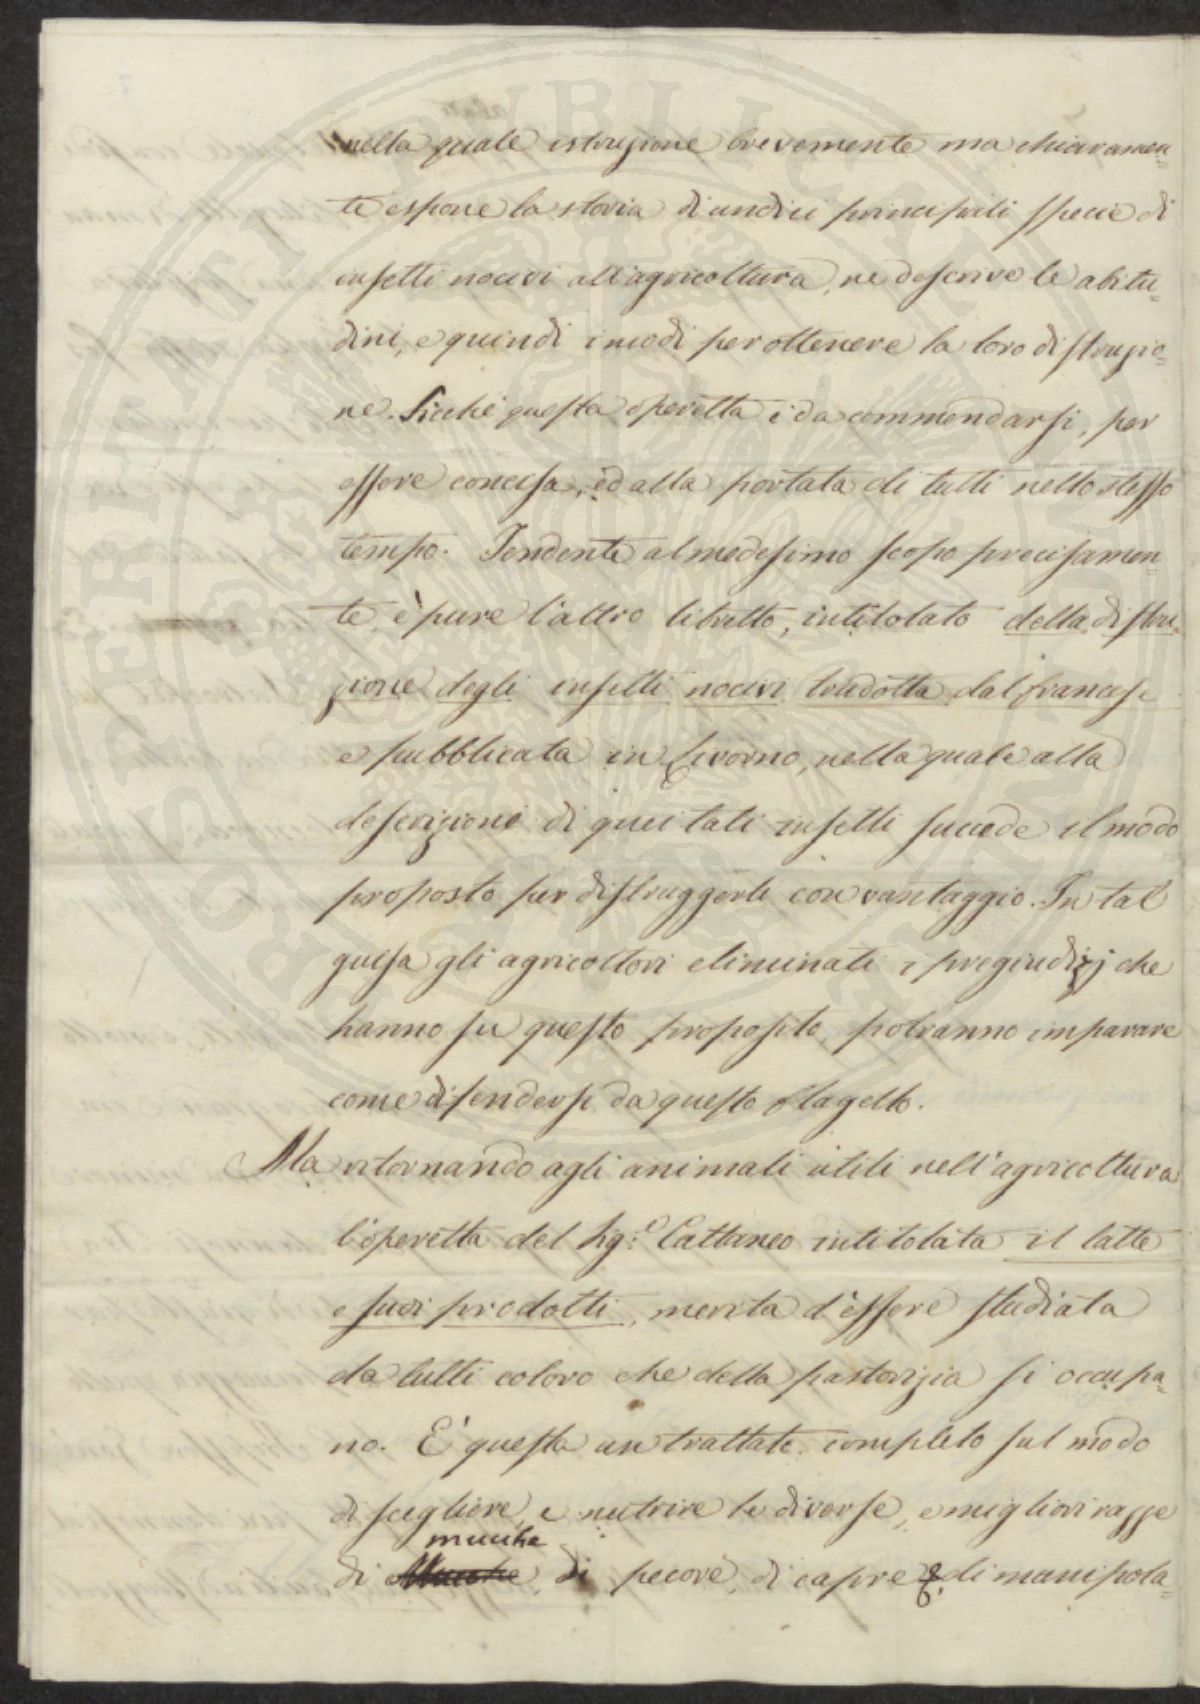 nella quale istruzione brevemente ma chiaramen=
te espone la storia di undici principali specie di
insetti nocivi all'agricoltura, ne descrive le abitu=
dini, e quindi i modi per ottenere la loro distruzio=
ne. Sicchè questa operetta è da commendarsi, per
essere concisa, ed alla portata di tutti nello stesso
tempo. Tendente al medesimo scopo precisamen=
te è pure l'altro libretto, intitolato della distru=
zione degli insetti nocivi tradotta dal francese
e pubblicata in Livorno, nella quale alla
descrizione di quei tali insetti succede il modo
proposto per distruggerli con vantaggio. In tal
guisa gli agricoltori eliminati i pregiudizj che
hanno su questo proposito, potranno imparare
come difendersi da questo flagello.
Ma ritornando agli animali utili nell'agricoltura
l'operetta del Sig.e Cattaneo intitolata il latte
e suoi prodotti, merita d'essere studiata
da tutti coloro che della pastorizia si occupa=
no. È questa un trattato completo sul modo
di scegliere, e nutrire le diverse, e migliori razze
mucche
di Mucche, di pecore, di capre e di manipola=
PROSPERITATI PUBLICAE